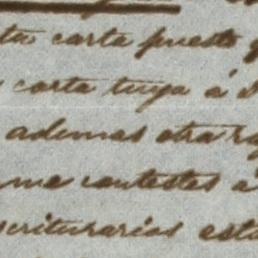 tu carta puesto q
carta tuya á
ademas otra ra
me contestes a
scriturarios esta